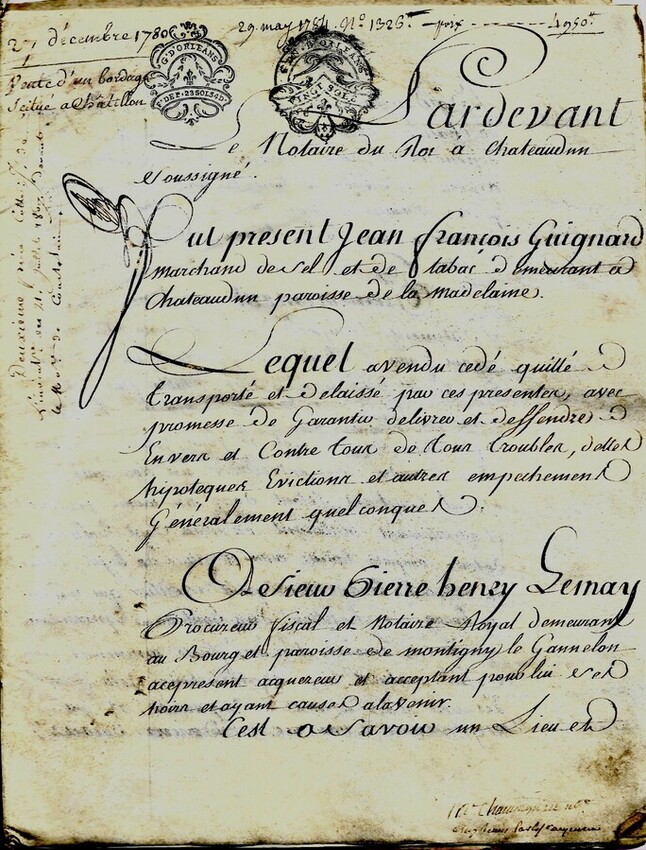 27 décembre 1780
29 may 1784. N.º 1326. pour 4950lt
Vente d'un bordage
Scitué a Châtillon
G. D'ORLEANS
P. DEP. 23 SOLS 4 D.
G. D'ORLEANS
VINGT SOLS
Pardevant
Le Notaire du Roi à Chateaudun
soussigné.
Fut present Jean françois Guignard
marchand de sel et de tabac demeurant a
Chateaudun paroisse de la madelaine.
Lequel a vendu cedé quitté
transporté et delaissé par ces presentes, avec
promesse de Garantir delivrer et deffendre
Envers et Contre tous de tous troubles, dettes
hipoteques Evictions et autres empechemens
Généralement quelconques.
A Sieur Pierre henry Lemay
Procureur fiscal et Notaire Royal demeurant
au Bourg et paroisse de montigny le Gannelon
a ce present acquereur et acceptant pour lui ses
hoirs et ayant causes a lavenir.
C'est a Savoir un Lieu et
Deuxième